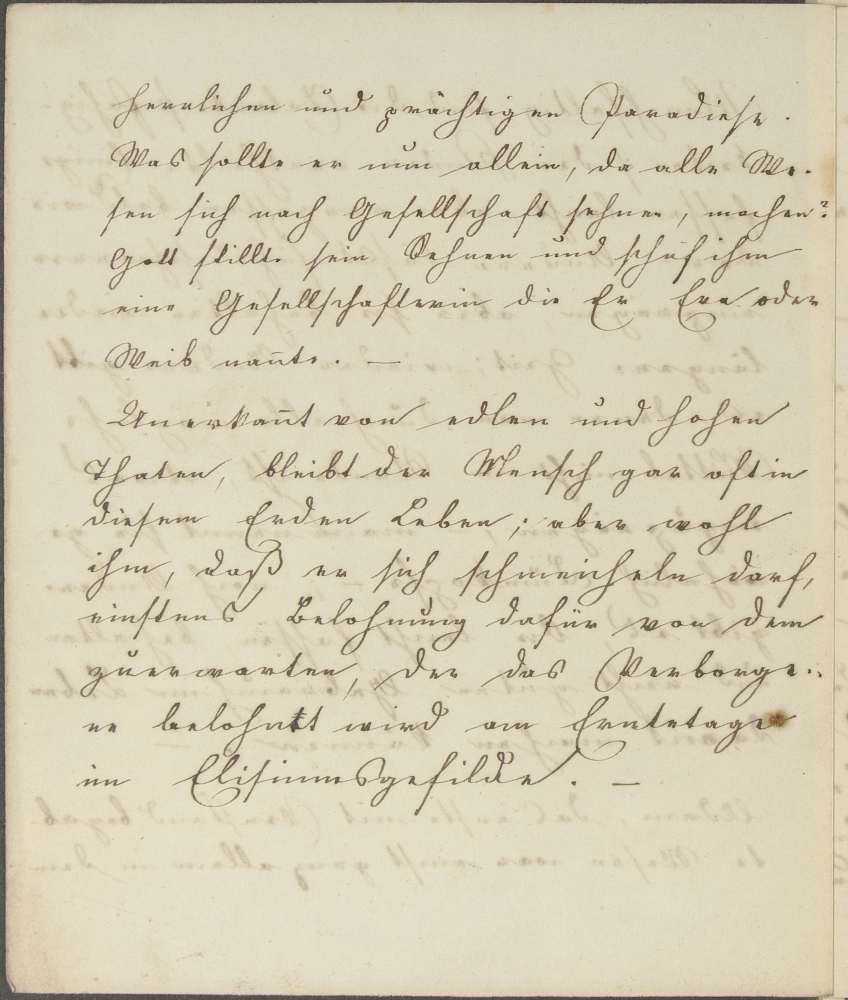 herrlichen und prächtigen Paradiese.
Was sollte er nun allein, da alle We-
sen sich nach Gesellschaft sehnen, machen?
Gott stillte sein Sehnen und schuf ihm
eine Gesellschafterin die Er Eva oder
Weib nan̄te. —
Unerkan̄t von edlen und hohen
Thaten, bleibt der Mensch gar oft in
diesem Erden Leben; aber wohl
ihm, daß er sich schmeicheln darf,
einstens Belohnung dafür von dem
zuerwarten, der das Verborge-
ne belohnt wird am Erntetage
im Elisiumsgefilde. —